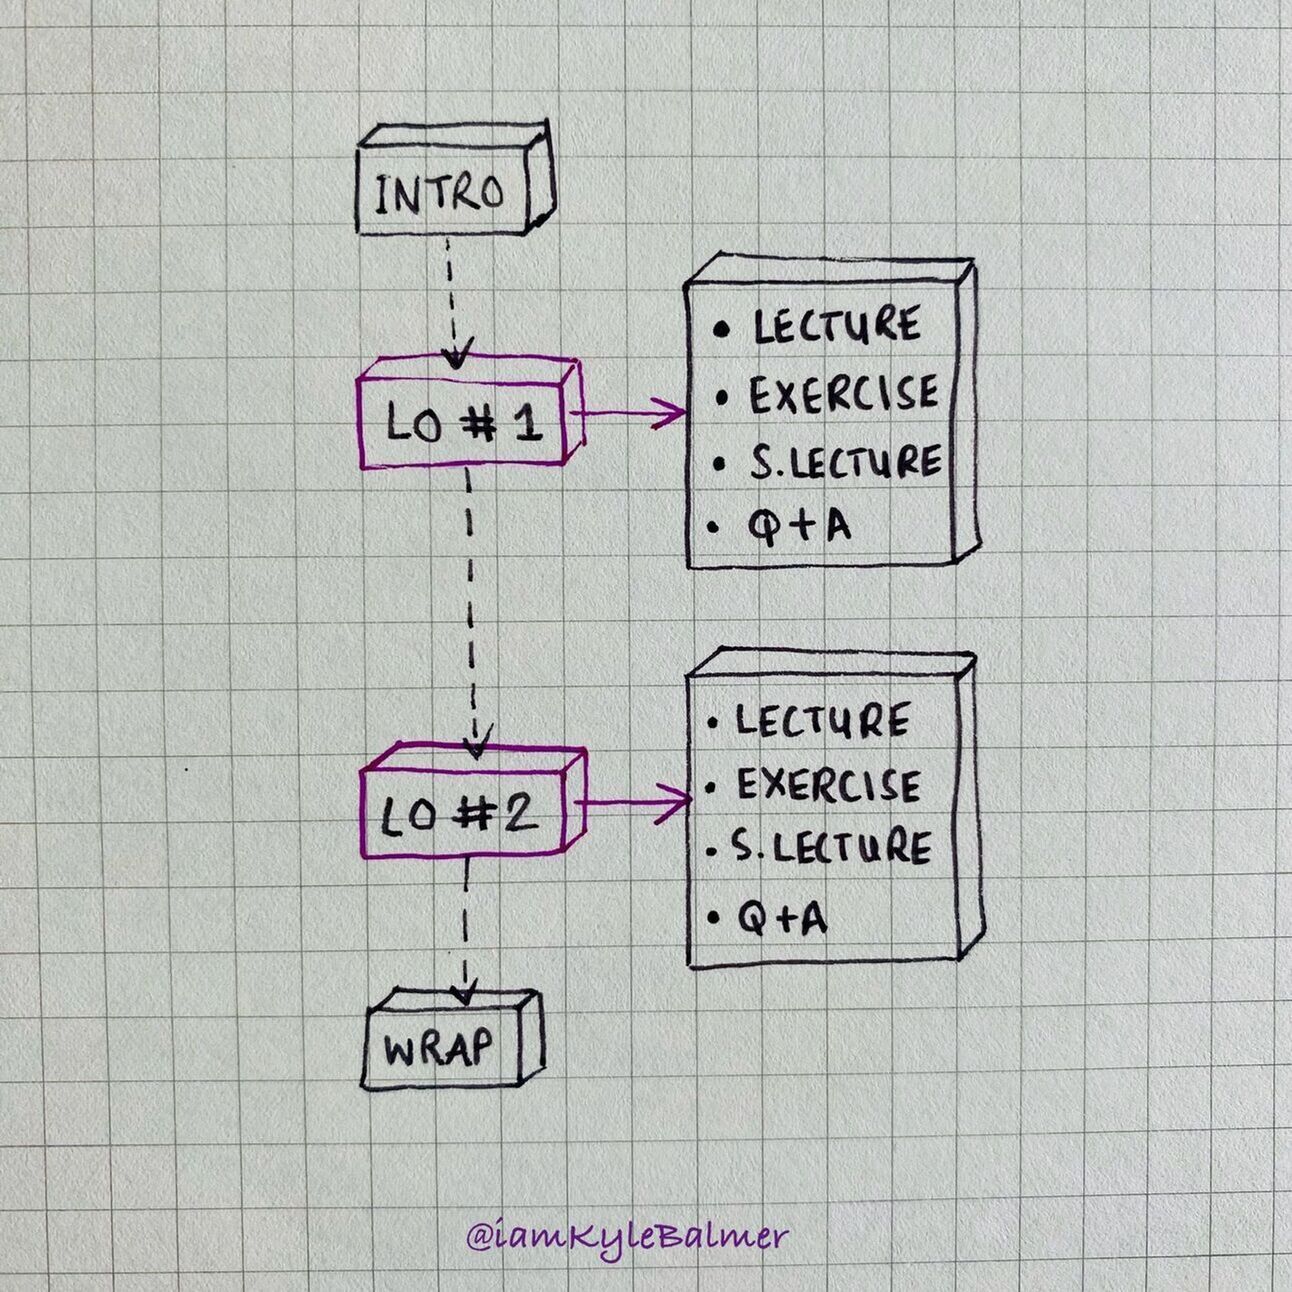 INTRO
LO #1
• LECTURE
• EXERCISE
• S.LECTURE
• Q+A
LO #2
• LECTURE
• EXERCISE
• S.LECTURE
• Q+A
WRAP
@iamKyleBalmer